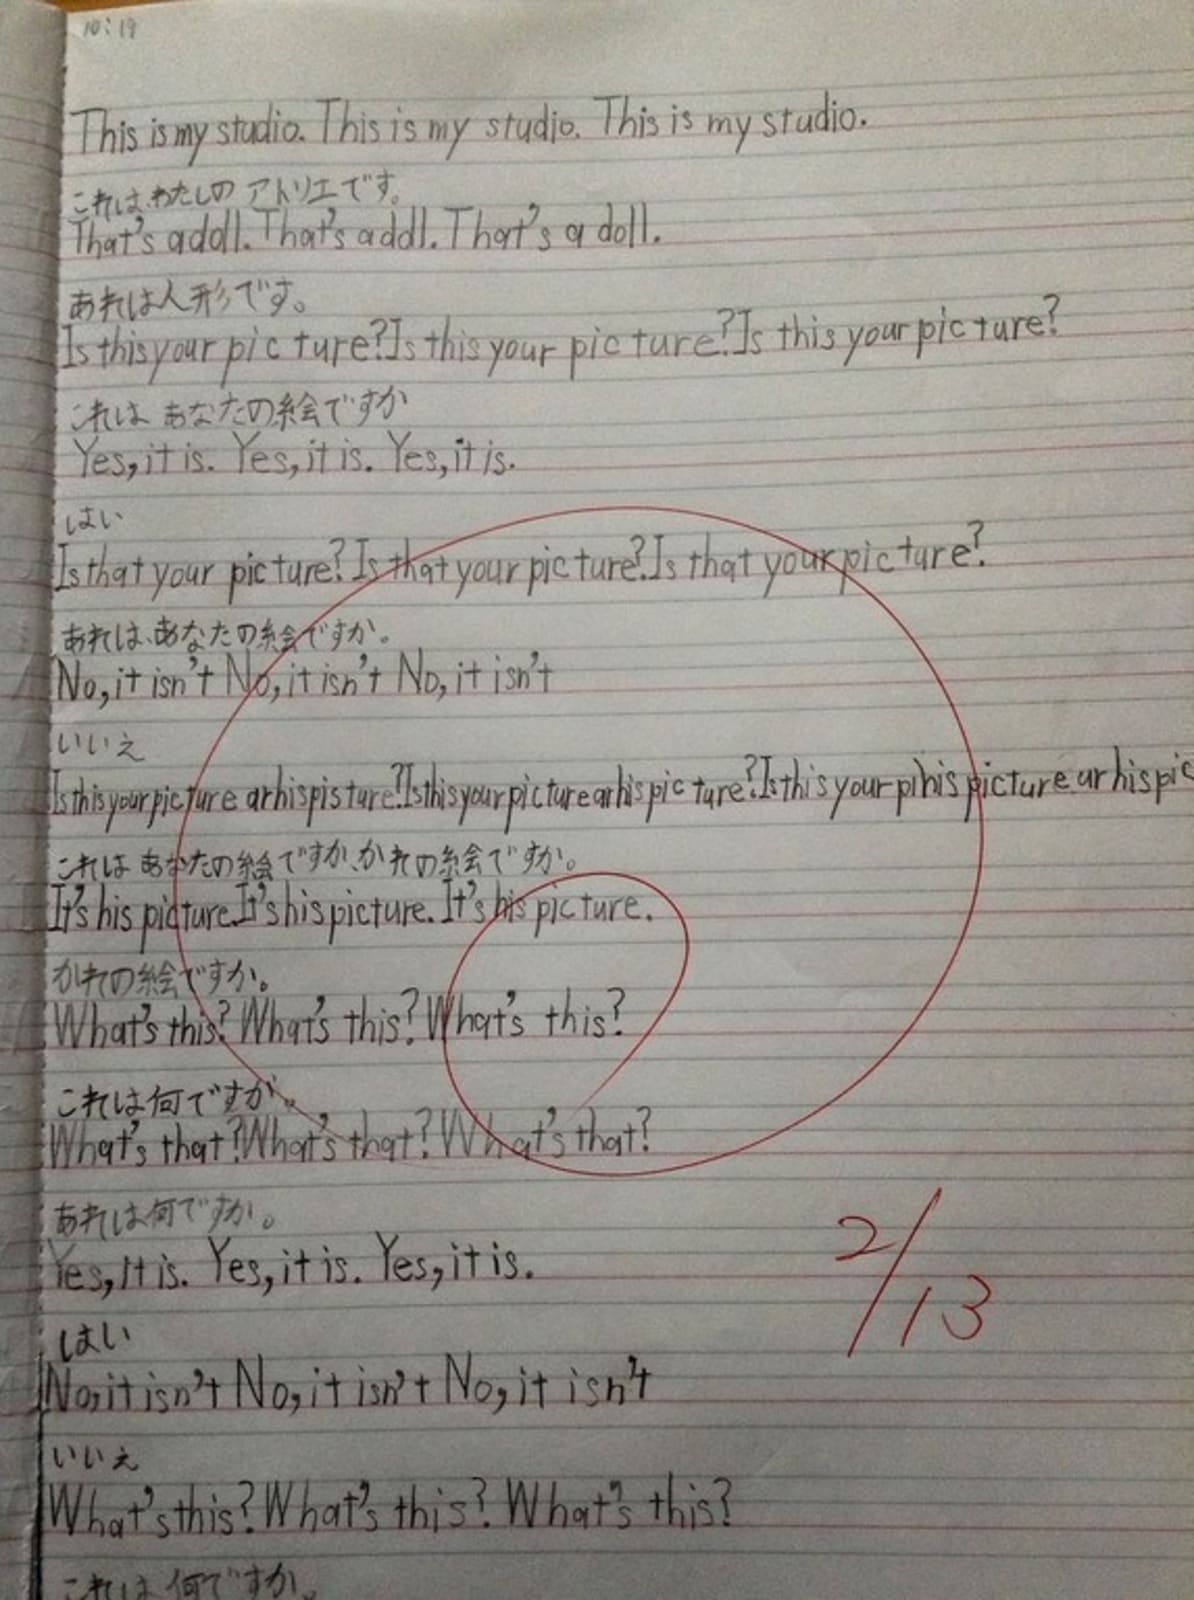 10:19
This is my studio. This is my studio. This is my studio.
これは、わたしの アトリエです。
That's a doll. That's a doll. That's a doll.
あれは人形です。
Is this your picture? Is this your picture? Is this your picture?
これは あなたの絵ですか
Yes, it is. Yes, it is. Yes, it is.
はい
Is that your picture? Is that your picture? Is that your picture?
あれは、あなたの絵ですか。
No, it isn't No, it isn't No, it isn't
いいえ
Is this your picture ar his pisture? Is this your picture ar his picture? Is this your pihis picture ar his pic
これは あなたの絵ですか、かれの絵ですか。
It's his picture. It's his picture. It's his picture.
かれの絵ですか。
What's this? What's this? What's this?
これは何ですか。
What's that? What's that? What's that?
あれは何ですか。
Yes, it is. Yes, it is. Yes, it is.
2/13
はい
No, it isn't No, it isn't No, it isn't
いいえ
What's this? What's this? What's this?
これは 何ですか。